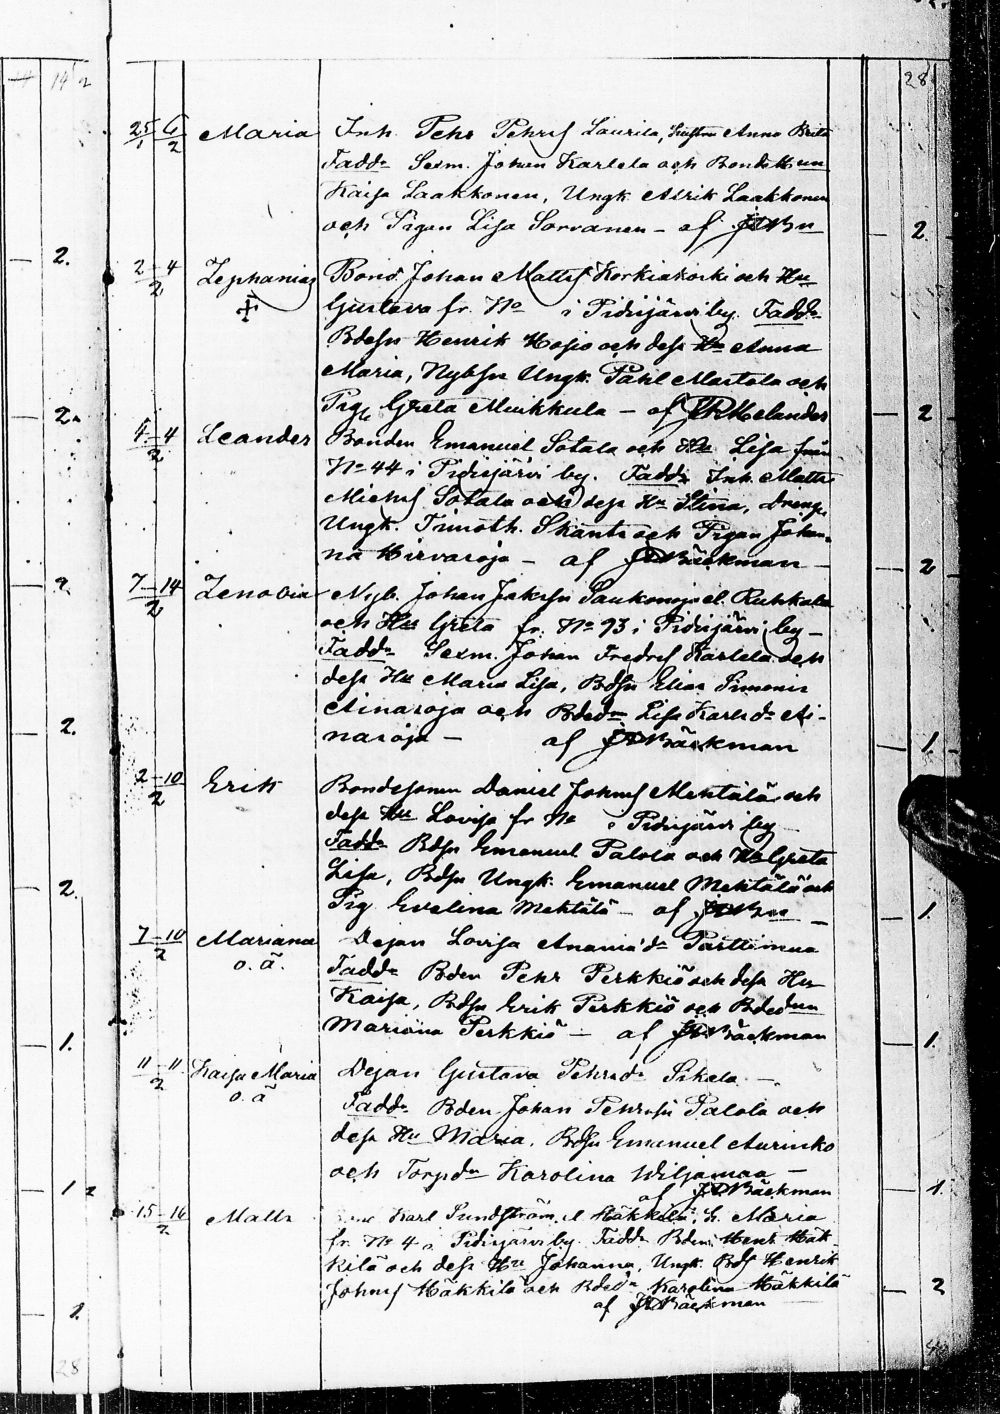 14 2 28
25/1 6/2 Maria Inh. Pehr Pehrss Laurila, hustru Anna Brita
Fadd. Sexm. Johan Karlela och Bondehun
Kaisa Laakkonen, Ungk. Alrik Laakkonen
och Pigan Lisa Sorvanen – af
2. 2.
2–4/2 Zephanias Bond. Johan Mattss Korkiakoski och Hu
Gustava fr. No i Pidisjärvi by. Fadd.
Bdesn Henrik Hosio och dess Hu Anna
Maria, Nybsn Ungk. Påhl Martola och
Pig. Greta Muikkula – af Helander
2. 2
4–4/2 Leander Bonden Emanuel Sotala och Hu Lisa från
No 44 i Pidisjärvi by. Fadd. Inh. Matts
Michels Sotala och dess Hu Stina, Dreng.
Ungk. Timoth. Skants och Pigan Johan-
na Hirvaroja – af Bäckman
2. 2
7–14/2 Zenobia Nyb. Johan Jakssn Saukonoja el. Ruhkala
och Hu Greta fr. No 93 i Pidisjärvi by –
Fadd. Sexm. Johan Fredrs Karlela och
dess Hu Maria Lisa, Bdsn Elias Simonss
Ainaroja och Bded. Lisa Karlsd. Ai-
naroja – af Bäckman
2. 1.
2–10/2 Erik Bondesonen Daniel Johnss Mehtälä och
dess Hu Lovisa fr No i Pidisjärvi by –
Fadd. Bdsn Emanuel Palola och Hu Greta
Lisa, Bdsn Ungk. Emanuel Mehtälä och
Pig. Evelina Mehtälä – af
2. 1.
7–10/2 Mariana Dejan Lovisa Ananiasd. Parttimaa
o. ä. Fadd. Bden Pehr Perkkiö och dess Hu
Kaisa, Bdsn Erik Perkkiö och Bded.
Mariana Perkkiö – af Bäckman
1. 1.
11–11/2 Kaisa Maria Dejan Gustava Pehrsd. Sikala –.
o. ä Fadd. Bden Johan Pehrssn Palola och
dess Hu Maria. Bdsn Emanuel Aurinko
och Torpd. Karolina Wiljamaa –
af Bäckman
1 2 1.
15–16/2 Matts Karl Sundström el Häkkilä, h. Maria
fr. No 4 i Pidisjärvi by. Fadd. Bden Henr Häk-
kilä och dess Hu Johanna, Ungk. Bds Henrik
Johnss Häkkilä och Bded. Karolina Häkkilä
af Bäckman
1. 2
28